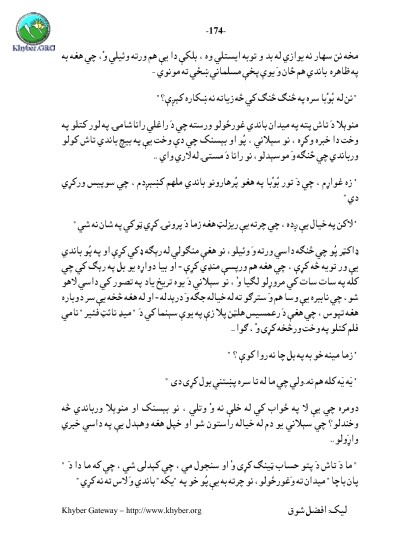 -174-
Khyber.ORG
مخه نن سهار نه يوازې له بد و توبه ايستلې وه ، بلکې دا يې هم ورته وئيلي وُ، چې هغه به
په ظاهره باندې هم ځان وَ يوې پخې مسلمانې ښځې ته مونوي -
" نن له بُوبُا سره په څنګ څنګ کې څه زياته نه ښکاره کېږې؟ "
منوېلا دَ تاش پته په ميدان باندې غورځولو ورسته چې دَ راغلي راناشامۍ په لور کتلو په
وخت دا خبره وکړه ، نو سېلاني ، پُو او بېسنک چې دې وخت يې په بيچ باندې تاش کولو
ورباندې چې څنګه وَ موسېدلو ، نو رانا دَ مستۍ له لارې واي ..
" زه غواړم ، چې دَ تور بُوبُا په هغو پُرهارونو باندې ملهم کښېږدم ، چې سويپس ورکړي
دي "
" لاکن په خيال يې ږده ، چې چرته يې ريزلټ هغه زما دَ پرونۍ کړې ټوکې په شان نه شي "
ډاکټر پُو چې څنګه داسې ورته وَ وئيلو ، نو هغې منګولې له رېګه ډکې کړې او په پُو باندې
يې ور تويه څه کړې ، چې هغه هم ورپسې منډې کړې - او بيا دواړه يو بل په رېګ کې چې
کله په سات سات کې مروړلو لګيا وُ ، نو سېلاني دَ يوه تريخ ياد په تصور کې داسې لاهو
شو ، چې ناببره يې وسا هم وَ سترګو ته له خياله جګه وَ درېد له - او له هغه څخه يې سر دوباره
هغه تپوس ، چې هغې دَ رعمسيس هلټن پلا زې په يوې سېنما کې دَ " ميډ نائټ فئير " نامي
فلم کتلو په وخت ورڅخه کړی وُ ، ګوا ..
" زما مينه خو به په بل چا نه روا کوې ؟ "
" يَه يَه کله هم نه. ولې چې ما له تا سره پښتنې يول کړی دی "
دومره چې يې لا په ځواب کې له خلې نه وُ وتلي ، نو بېسنک او منوېلا ورباندې څه
وخندلو؟ چې سېلاني يو دم له خياله راستون شو او خپل هغه وهېدل يې په داسې خبرې
واړولو ..
" ما دَ تاش دَ پتو حساب ټينګ کړی وُ او سنجول مې ، چې کېدلی شي ، چې که ما دا دَ "
پان باچا " ميدان ته وَ غورځولو ، نو چرته به يې پُو خو په " يکه " باندې وَ لاس ته نه کړي "
Khyber Gateway – http://www.khyber.org
ليک: افضل شوق